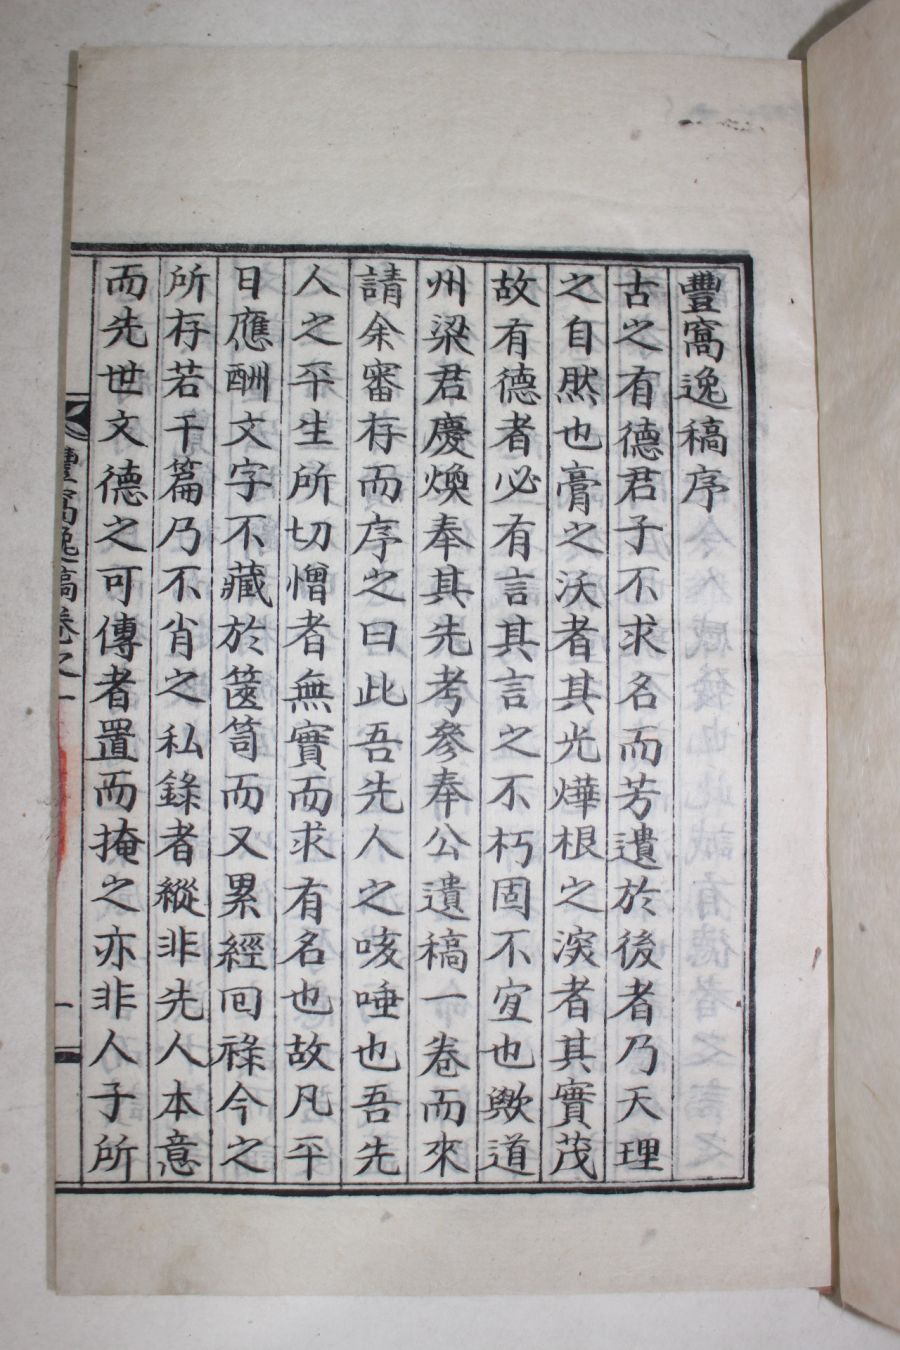 豐窩逸稿序
古之有德君子不求名而芳遺於後者乃天理
之自然也膏之沃者其光燁根之深者其實茂
故有德者必有言其言之不朽固不宜也歟道
州梁君慶煥奉其先考參奉公遺稿一卷而來
請余審存而序之曰此吾先人之咳唾也吾先
人之平生所切憎者無實而求有名也故凡平
日應酬文字不藏於篋笥而又累經回祿今之
所存若干篇乃不肖之私錄者縱非先人本意
而先世文德之可傳者置而掩之亦非人子所
豐窩逸稿卷之一
一